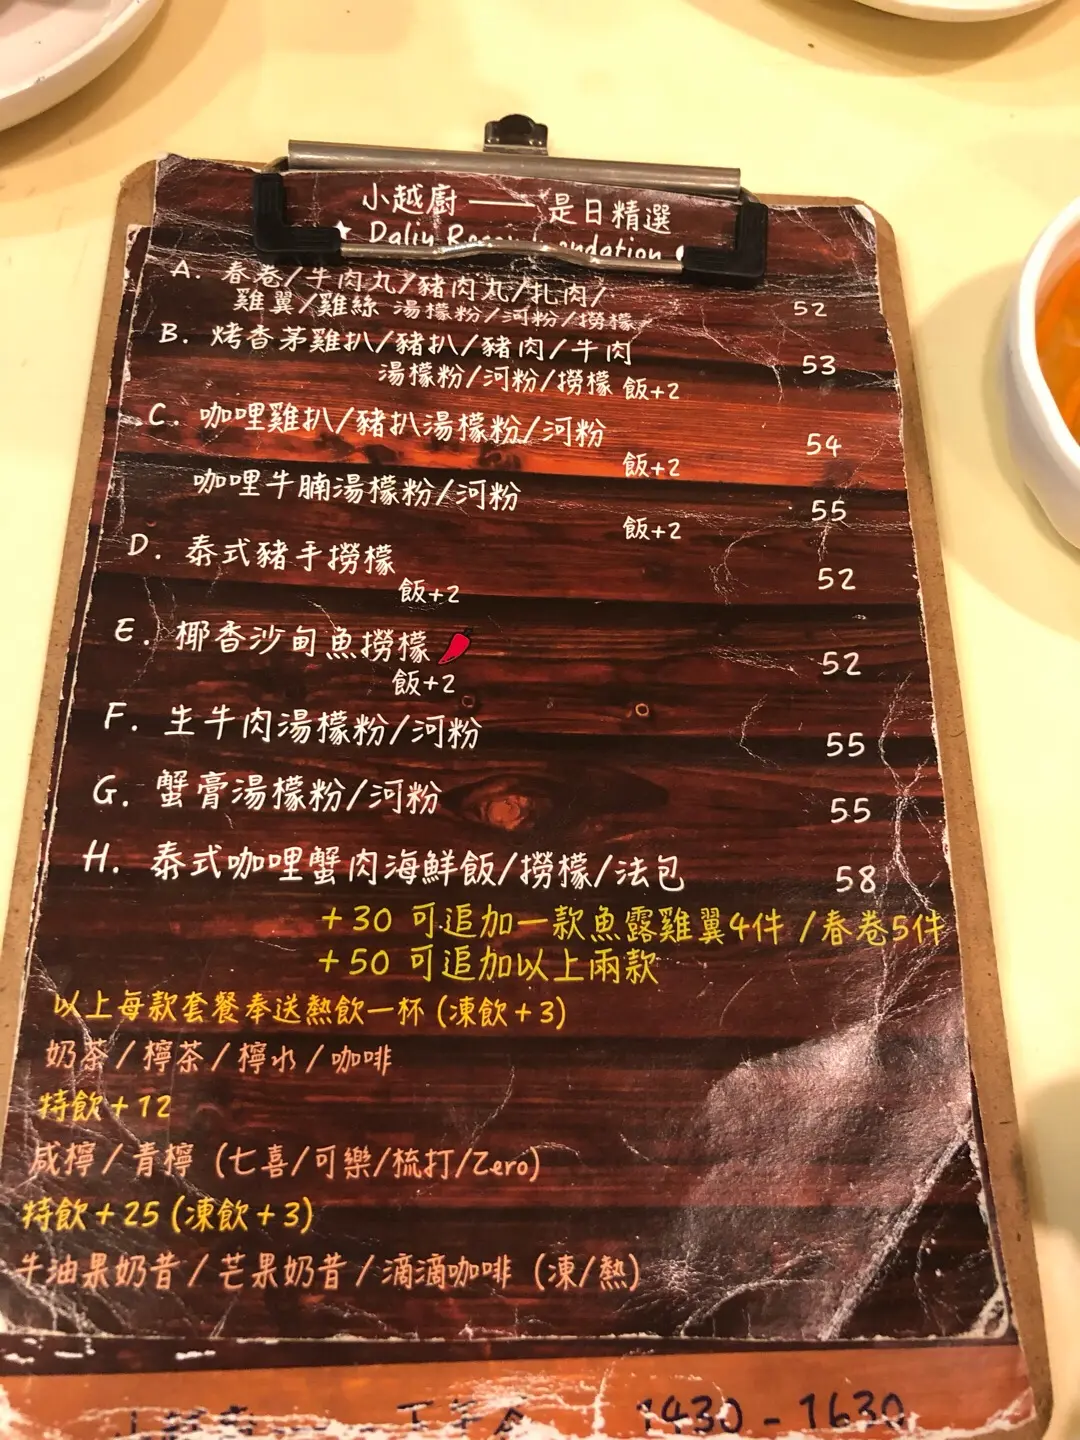 小越廚 —— 是日精選
Daliy
A. 春卷/牛肉丸/豬肉丸/扎肉/
雞翼/雞絲 湯檬粉/河粉/撈檬 52
B. 烤香茅雞扒/豬扒/豬肉/牛肉 53
湯檬粉/河粉/撈檬 飯+2
C. 咖哩雞扒/豬扒湯檬粉/河粉 54
飯+2
咖哩牛腩湯檬粉/河粉 55
飯+2
D. 泰式豬手撈檬 52
飯+2
E. 椰香沙甸魚撈檬 52
飯+2
F. 生牛肉湯檬粉/河粉 55
G. 蟹膏湯檬粉/河粉 55
H. 泰式咖哩蟹肉海鮮飯/撈檬/法包 58
+30 可追加一款魚露雞翼4件 /春卷5件
+50 可追加以上兩款
以上每款套餐奉送熱飲一杯 (凍飲+3)
奶茶/檸茶/檸水/咖啡
特飲+12
咸檸/青檸 (七喜/可樂/梳打/Zero)
特飲+25 (凍飲+3)
牛油果奶昔/芒果奶昔/滴滴咖啡 (凍/熱)
1430-1630